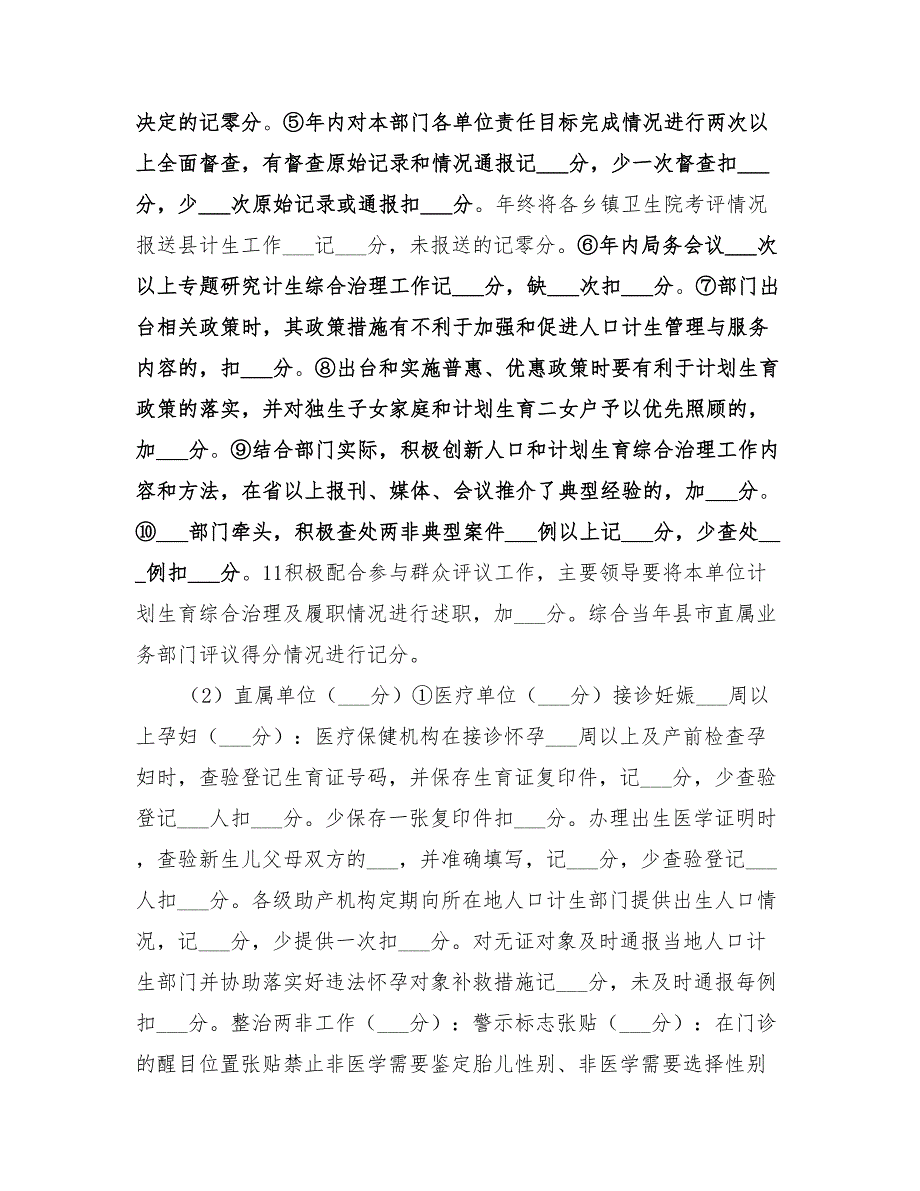 决定的记零分。⑤年内对本部门各单位责任目标完成情况进行两次以
上全面督查，有督查原始记录和情况通报记___分，少一次督查扣___
分，少___次原始记录或通报扣___分。年终将各乡镇卫生院考评情况
报送县计生工作___记___分，未报送的记零分。⑥年内局务会议___次
以上专题研究计生综合治理工作记___分，缺___次扣___分。⑦部门出
台相关政策时，其政策措施有不利于加强和促进人口计生管理与服务
内容的，扣___分。⑧出台和实施普惠、优惠政策时要有利于计划生育
政策的落实，并对独生子女家庭和计划生育二女户予以优先照顾的，
加___分。⑨结合部门实际，积极创新人口和计划生育综合治理工作内
容和方法，在省以上报刊、媒体、会议推介了典型经验的，加___分。
⑩___部门牵头，积极查处两非典型案件___例以上记___分，少查处__
_例扣___分。11积极配合参与群众评议工作，主要领导要将本单位计
划生育综合治理及履职情况进行述职，加___分。综合当年县市直属业
务部门评议得分情况进行记分。
（2）直属单位（___分）①医疗单位（___分）接诊妊娠___周以
上孕妇（___分）：医疗保健机构在接诊怀孕___周以上及产前检查孕
妇时，查验登记生育证号码，并保存生育证复印件，记___分，少查验
登记___人扣___分。少保存一张复印件扣___分。办理出生医学证明时
，查验新生儿父母双方的___，并准确填写，记___分，少查验登记___
人扣___分。各级助产机构定期向所在地人口计生部门提供出生人口情
况，记___分，少提供一次扣___分。对无证对象及时通报当地人口计
生部门并协助落实好违法怀孕对象补救措施记___分，未及时通报每例
扣___分。整治两非工作（___分）：警示标志张贴（___分）：在门诊
的醒目位置张贴禁止非医学需要鉴定胎儿性别、非医学需要选择性别